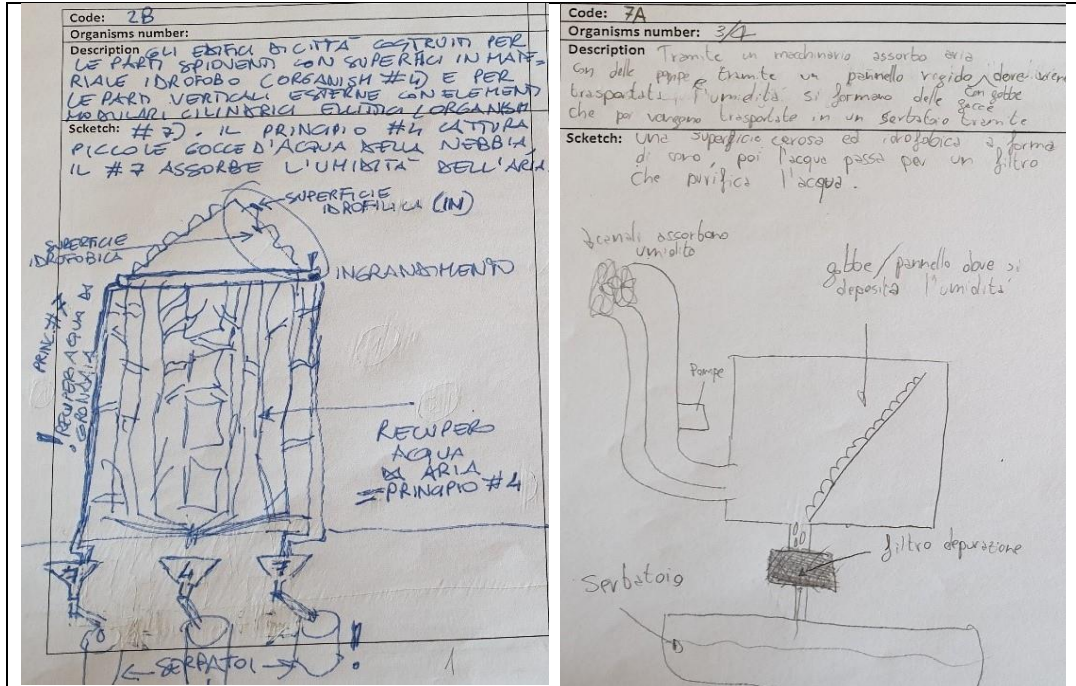 Code: 2B
Organisms number:
Description GLI EDIFICI DI CITTÀ COSTRUITI PER
LE PARTI SPIOVENTI CON SUPERFICI IN MATE-
RIALE IDROFOBO (ORGANISM #4) E PER
LE PARTI VERTICALI ESTERNE CON ELEMENTI
MODULARI CILINDRICI ELLITTICI (ORGANISM
Scketch: #7). IL PRINCIPIO #4 CATTURA
PICCOLE GOCCE D'ACQUA DELLA NEBBIA,
IL #7 ASSORBE L'UMIDITÀ DELL'ARIA
SUPERFICIE
IDROFILICA (IN)
SUPERFICIE
IDROFOBICA
INGRANDIMENTO
PRINC. #7
RECUPERO ACQUA DA
GRONDAIA
RECUPERO
ACQUA
DA ARIA
= PRINCIPIO #4
7
4
7
SERBATOI
1
Code: 7A
Organisms number: 3/4
Description Tramite un macchinario assorbo aria
con delle pompe e tramite un pannello rigido dove viene
con gobbe
trasportata l'umidità si formano delle gocce
che poi vengono trasportate in un serbatoio tramite
Scketch: una superficie cerosa ed idrofobica a forma
di cono, poi l'acqua passa per un filtro
che purifica l'acqua.
canali assorbono
umidità
gobbe/pannello dove si
deposita l'umidità
Pompe
filtro depurazione
Serbatoio